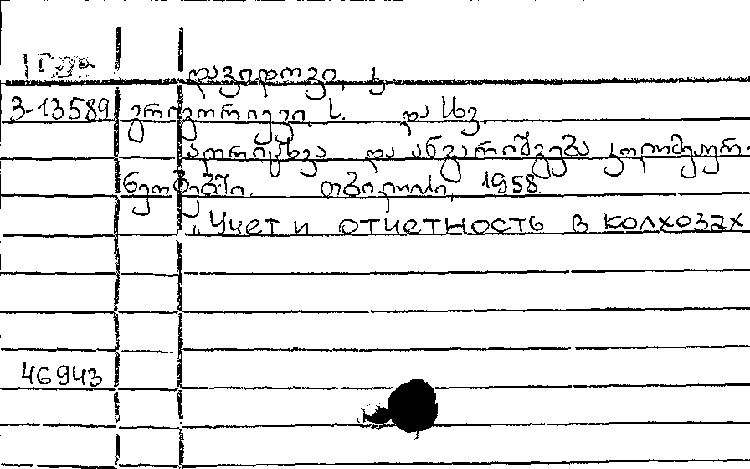 დავიდოვი, ს.
3-13589 გრიგორიევი, ს. და სხვ.
აღრიცხვა და ანგარიშგება კოლმეურ-
ნეობებში. თბილისი, 1958.
"Учет и отчетность в колхозах
46943